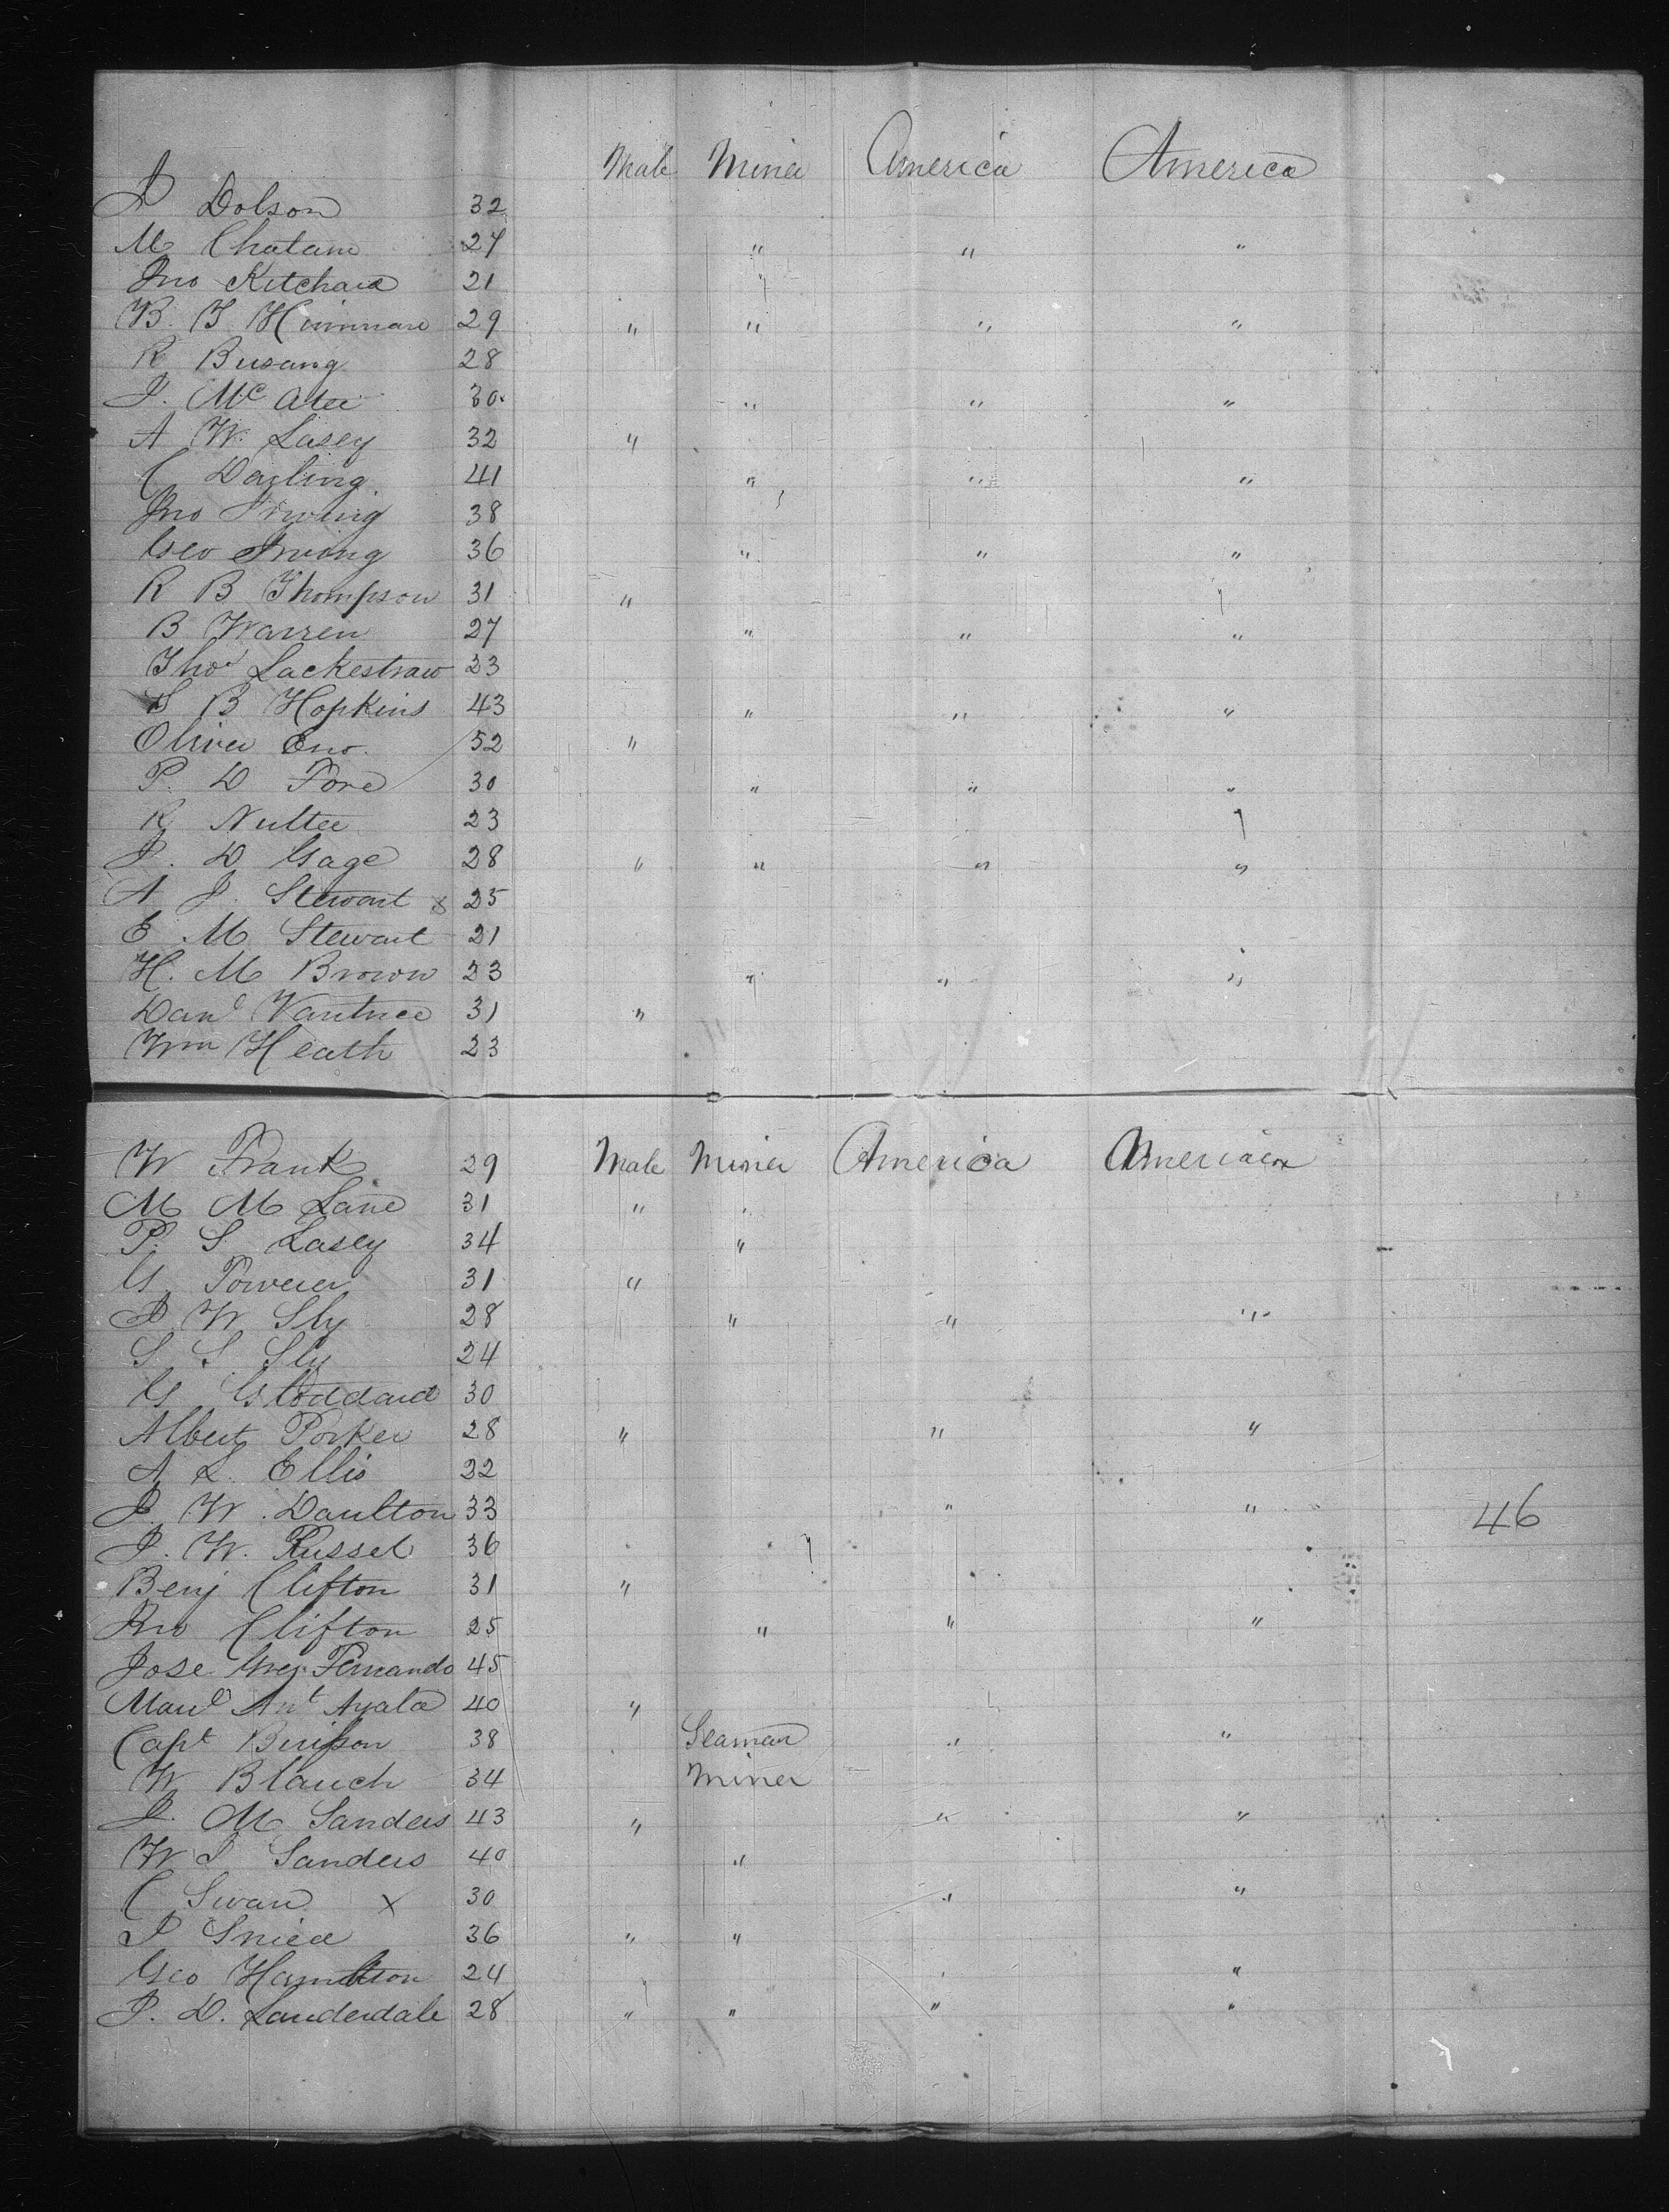 Male Miner America America
J Dolson 32
M Chatam 27 " " "
Jno Kitchard 21
B. T Hinman 29 " " " "
R Busang 28
J. McAtee 30 " " "
A W. Lasey 32 "
C Darling 41 " " "
Jno Irwing 38
Geo Irwing 36 " " "
R B Thompson 31 "
B Warren 27 " " "
Thos Lackestraw 23
S B Hopkins 43 " " "
Oliver Eno. 52 "
P. D Fore 30 " " "
R Nultee 23
J. D Gage 28 " " " "
A J. Stewart x 25
E M Stewart 21
H. M Brown 23 " " "
Danl Vantrice 31 "
Wm Heath 23
W Frank 29 Male Miner America American
M M Lane 31 " "
P. S Lasey 34 "
G. 31 "
J W Sly 28 " " "
S S Sly 24
G Stoddard 30
Albert Porker 28 " " "
A L. Ellis 32
J. W. Daulton 33 " " 46
J. W. Russel 36
Benj Clifton 31 "
Jno Clifton 25 " " "
Jose Greg. Fernando 45
Manl Ant Ayala 40 "
Capt 38 Seaman " "
W Blauch 34 Miner
J. M Sanders 43 " " "
W J Sanders 40 "
C Swan x 30 " "
J Snied 36 " "
Geo Hamilton 24 "
J. D. Lauderdale 28 " " " "